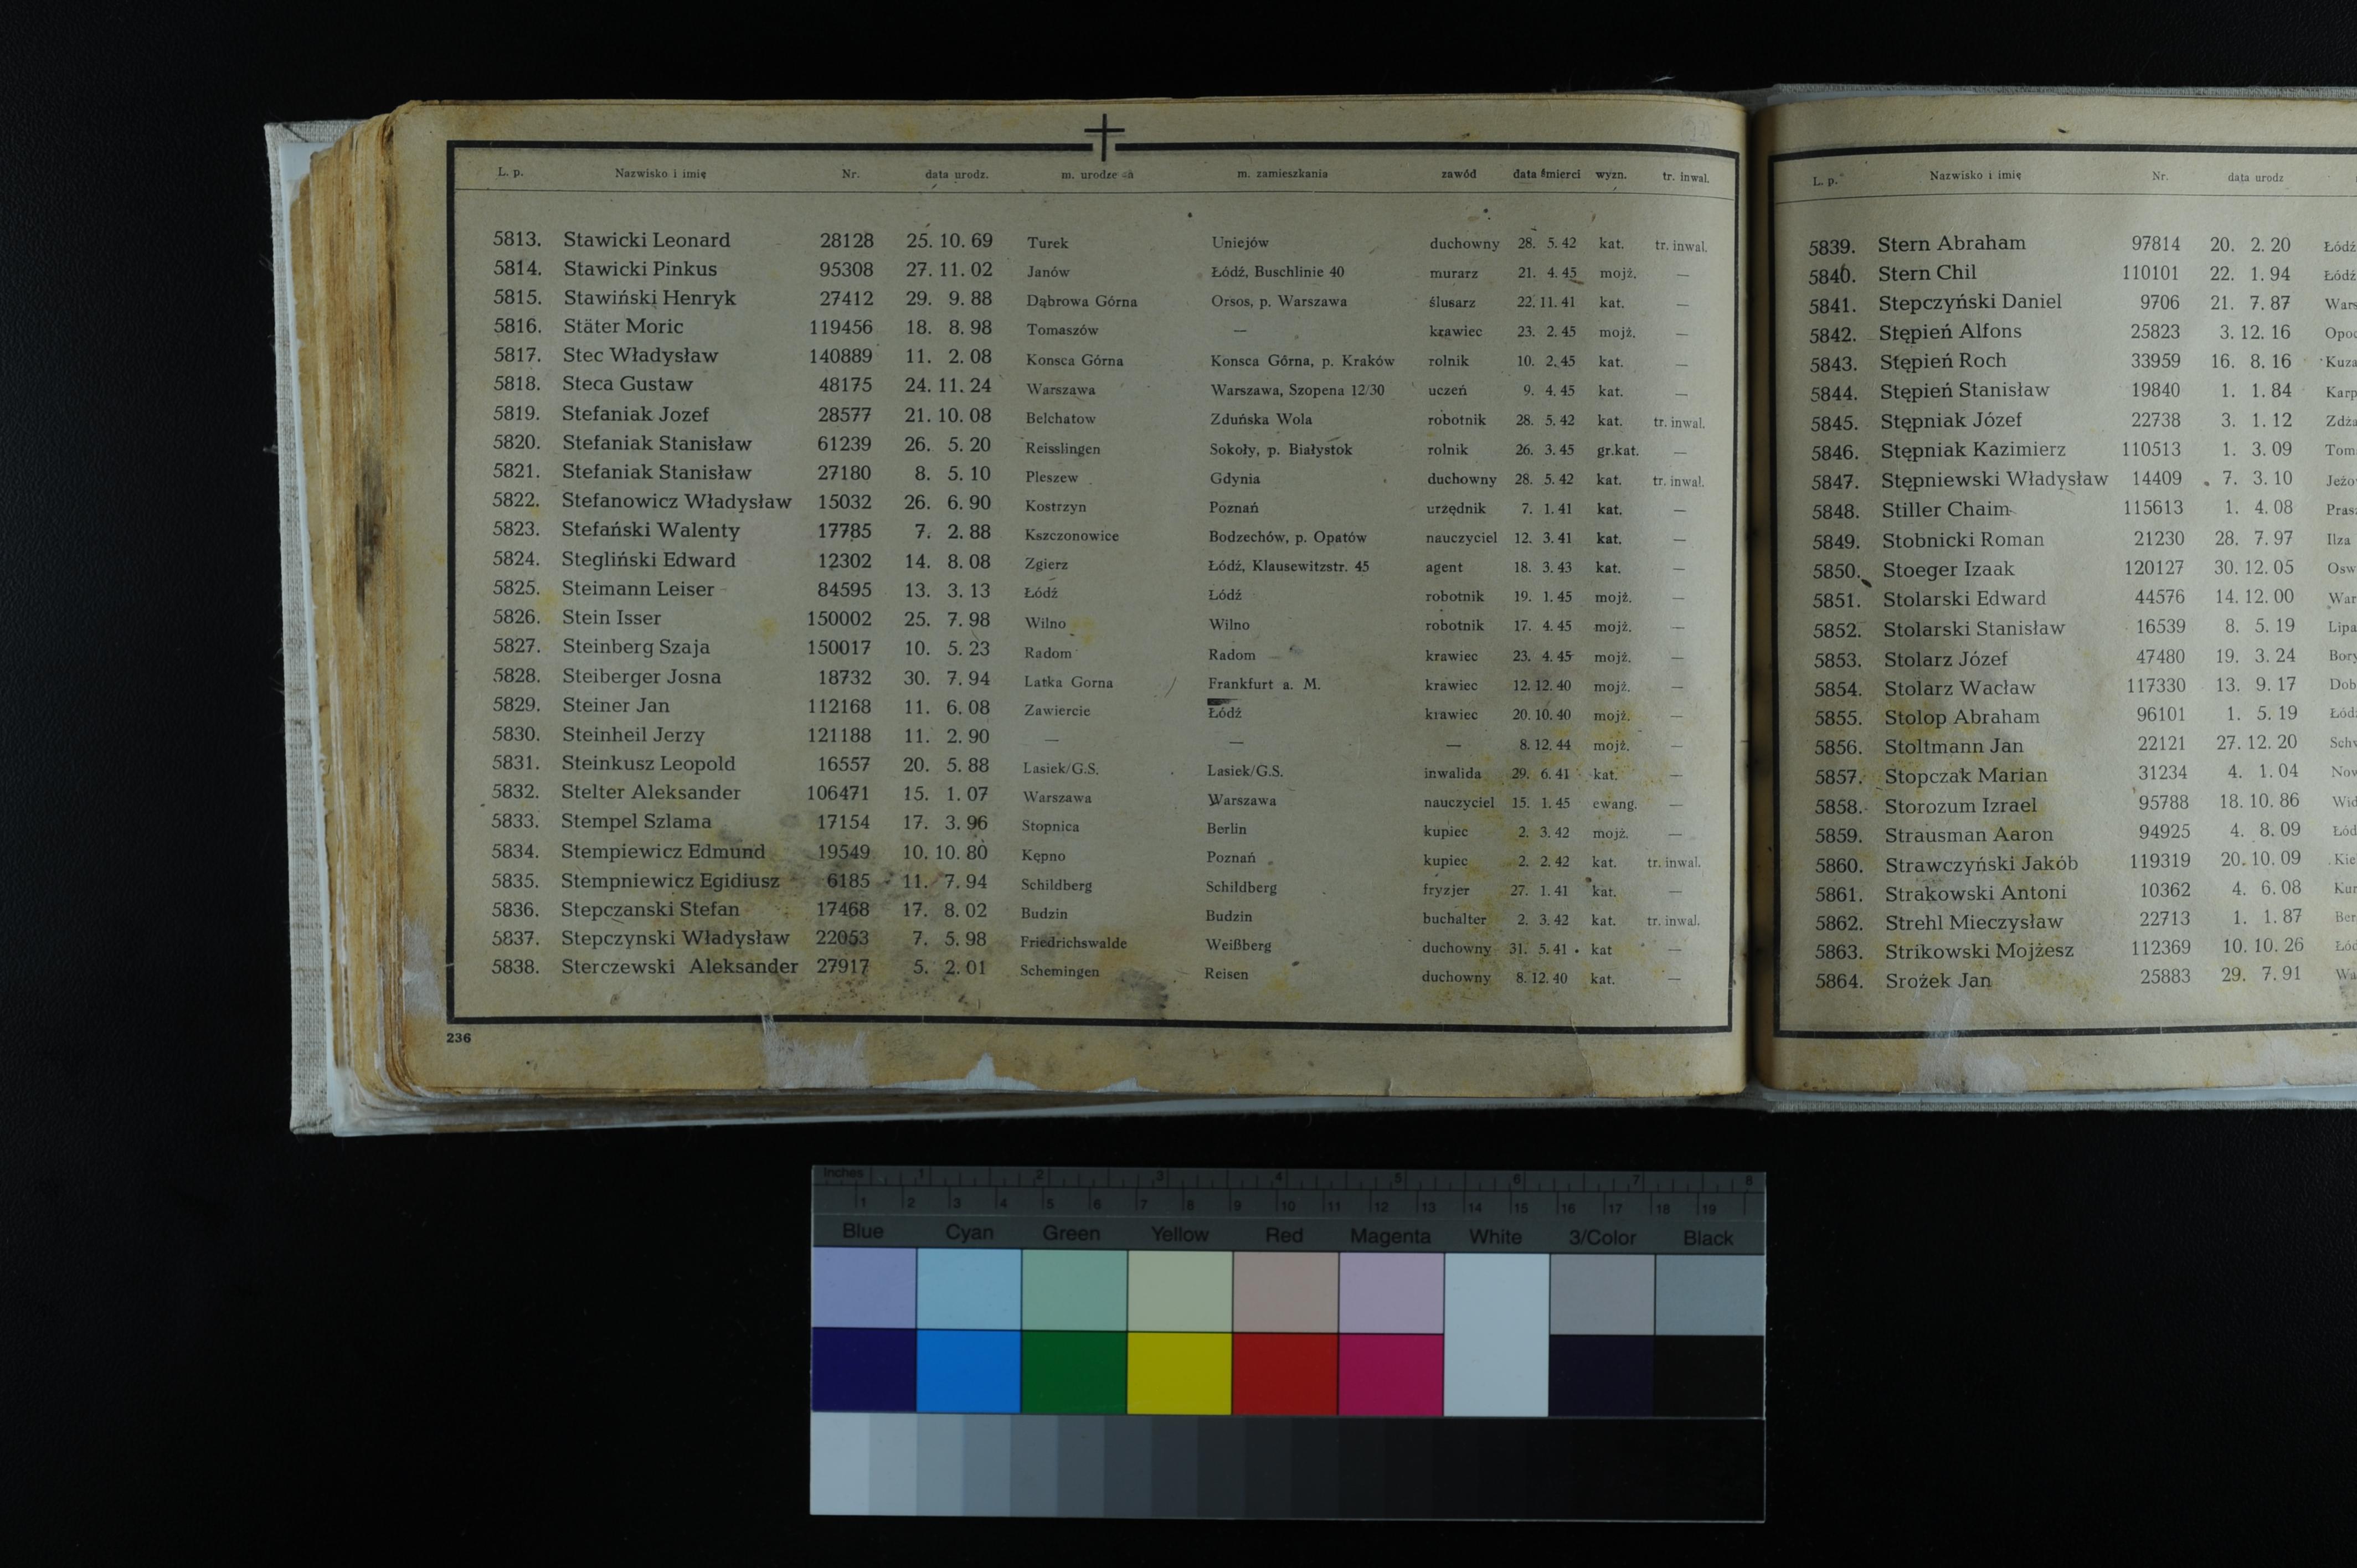 L. p. Nazwisko i imię Nr. data urodz. m. urodze a m. zamieszkania zawód data śmierci wyzn. tr. inwal.
5813. Stawicki Leonard 28128 25. 10. 69 Turek Uniejów duchowny 28. 5. 42 kat. tr. inwal.
5814. Stawicki Pinkus 95308 27. 11. 02 Janów Łódź, Buschlinie 40 murarz 21. 4. 45 mojż. —
5815. Stawiński Henryk 27412 29. 9. 88 Dąbrowa Górna Orsos, p. Warszawa ślusarz 22. 11. 41 kat. —
5816. Stäter Moric 119456 18. 8. 98 Tomaszów — krawiec 23. 2. 45 mojż. —
5817. Stec Władysław 140889 11. 2. 08 Konsca Górna Konsca Górna, p. Kraków rolnik 10. 2. 45 kat. —
5818. Steca Gustaw 48175 24. 11. 24 Warszawa Warszawa, Szopena 12/30 uczeń 9. 4. 45 kat. —
5819. Stefaniak Jozef 28577 21. 10. 08 Belchatow Zduńska Wola robotnik 28. 5. 42 kat. tr. inwal.
5820. Stefaniak Stanisław 61239 26. 5. 20 Reisslingen Sokoły, p. Białystok rolnik 26. 3. 45 gr.kat. —
5821. Stefaniak Stanisław 27180 8. 5. 10 Pleszew Gdynia duchowny 28. 5. 42 kat. tr. inwal.
5822. Stefanowicz Władysław 15032 26. 6. 90 Kostrzyn Poznań urzędnik 7. 1. 41 kat. —
5823. Stefański Walenty 17785 7. 2. 88 Kszczonowice Bodzechów, p. Opatów nauczyciel 12. 3. 41 kat. —
5824. Stegliński Edward 12302 14. 8. 08 Zgierz Łódź, Klausewitzstr. 45 agent 18. 3. 43 kat. —
5825. Steimann Leiser 84595 13. 3. 13 Łódź Łódź robotnik 19. 1. 45 mojż. —
5826. Stein Isser 150002 25. 7. 98 Wilno Wilno robotnik 17. 4. 45 mojż. —
5827. Steinberg Szaja 150017 10. 5. 23 Radom Radom krawiec 23. 4. 45 mojż. —
5828. Steiberger Josna 18732 30. 7. 94 Latka Gorna Frankfurt a. M. krawiec 12. 12. 40 mojż. —
5829. Steiner Jan 112168 11. 6. 08 Zawiercie Łódź krawiec 20. 10. 40 mojż. —
5830. Steinheil Jerzy 121188 11. 2. 90 — — — 8. 12. 44 mojż. —
5831. Steinkusz Leopold 16557 20. 5. 88 Lasiek/G.S. Lasiek/G.S. inwalida 29. 6. 41 kat. —
5832. Stelter Aleksander 106471 15. 1. 07 Warszawa Warszawa nauczyciel 15. 1. 45 ewang. —
5833. Stempel Szlama 17154 17. 3. 96 Stopnica Berlin kupiec 2. 3. 42 mojż. —
5834. Stempiewicz Edmund 19549 10. 10. 80 Kępno Poznań kupiec 2. 2. 42 kat. tr. inwal.
5835. Stempniewicz Egidiusz 6185 11. 7. 94 Schildberg Schildberg fryzjer 27. 1. 41 kat. —
5836. Stepczanski Stefan 17468 17. 8. 02 Budzin Budzin buchalter 2. 3. 42 kat. tr. inwal.
5837. Stepczynski Władysław 22053 7. 5. 98 Friedrichswalde Weißberg duchowny 31. 5. 41 kat —
5838. Sterczewski Aleksander 27917 5. 2. 01 Schemingen Reisen duchowny 8. 12. 40 kat. —
236
L. p. Nazwisko i imię Nr. data urodz
5839. Stern Abraham 97814 20. 2. 20 Łódź
5840. Stern Chil 110101 22. 1. 94 Łódź
5841. Stepczyński Daniel 9706 21. 7. 87 Wars
5842. Stępień Alfons 25823 3. 12. 16 Opoc
5843. Stępień Roch 33959 16. 8. 16 Kuza
5844. Stępień Stanisław 19840 1. 1. 84 Karp
5845. Stępniak Józef 22738 3. 1. 12 Zdża
5846. Stępniak Kazimierz 110513 1. 3. 09 Tom
5847. Stępniewski Władysław 14409 7. 3. 10 Jeżo
5848. Stiller Chaim 115613 1. 4. 08 Pras
5849. Stobnicki Roman 21230 28. 7. 97 Ilza
5850. Stoeger Izaak 120127 30. 12. 05 Osw
5851. Stolarski Edward 44576 14. 12. 00 War
5852. Stolarski Stanisław 16539 8. 5. 19 Lipa
5853. Stolarz Józef 47480 19. 3. 24 Bory
5854. Stolarz Wacław 117330 13. 9. 17 Dob
5855. Stolop Abraham 96101 1. 5. 19 Łódź
5856. Stoltmann Jan 22121 27. 12. 20 Schw
5857. Stopczak Marian 31234 4. 1. 04 Nov
5858. Storozum Izrael 95788 18. 10. 86 Wid
5859. Strausman Aaron 94925 4. 8. 09 Łód
5860. Strawczyński Jakób 119319 20. 10. 09 Kie
5861. Strakowski Antoni 10362 4. 6. 08 Kur
5862. Strehl Mieczysław 22713 1. 1. 87 Ber
5863. Strikowski Mojżesz 112369 10. 10. 26 Łód
5864. Srożek Jan 25883 29. 7. 91 Wa
Inches 1 2 3 4 5 6 7 8
1 2 3 4 5 6 7 8 9 10 11 12 13 14 15 16 17 18 19
Blue Cyan Green Yellow Red Magenta White 3/Color Black